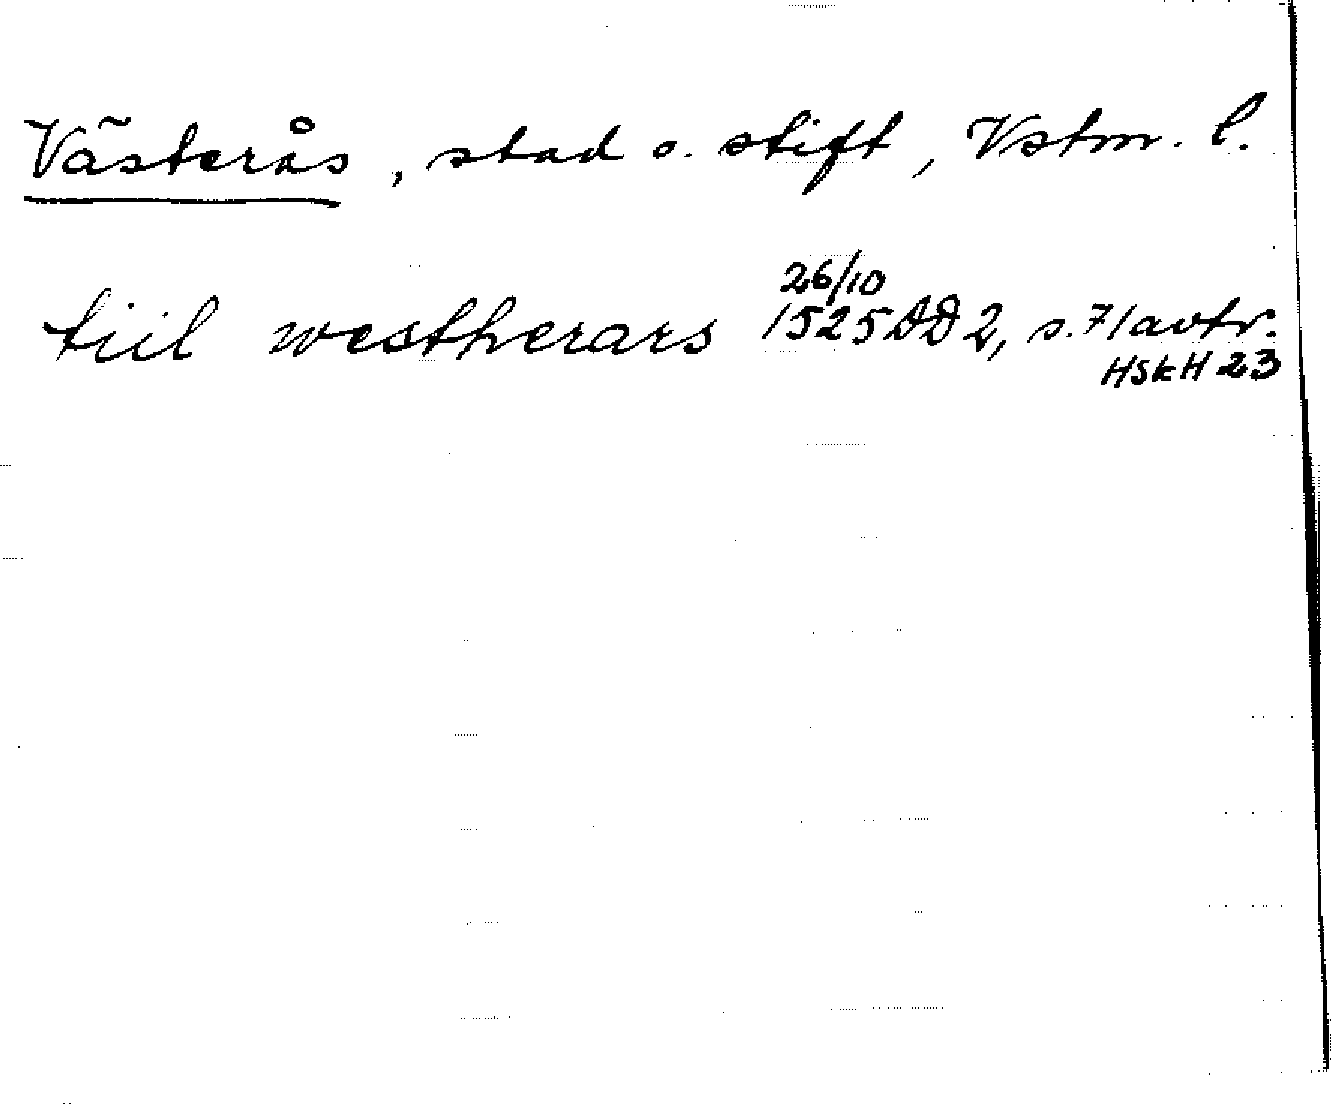 Västerås, stad o. stift, Vstm. l.
tiil westherars 26/10 1525 DD 2, s. 71 avtr.
HSkH 23